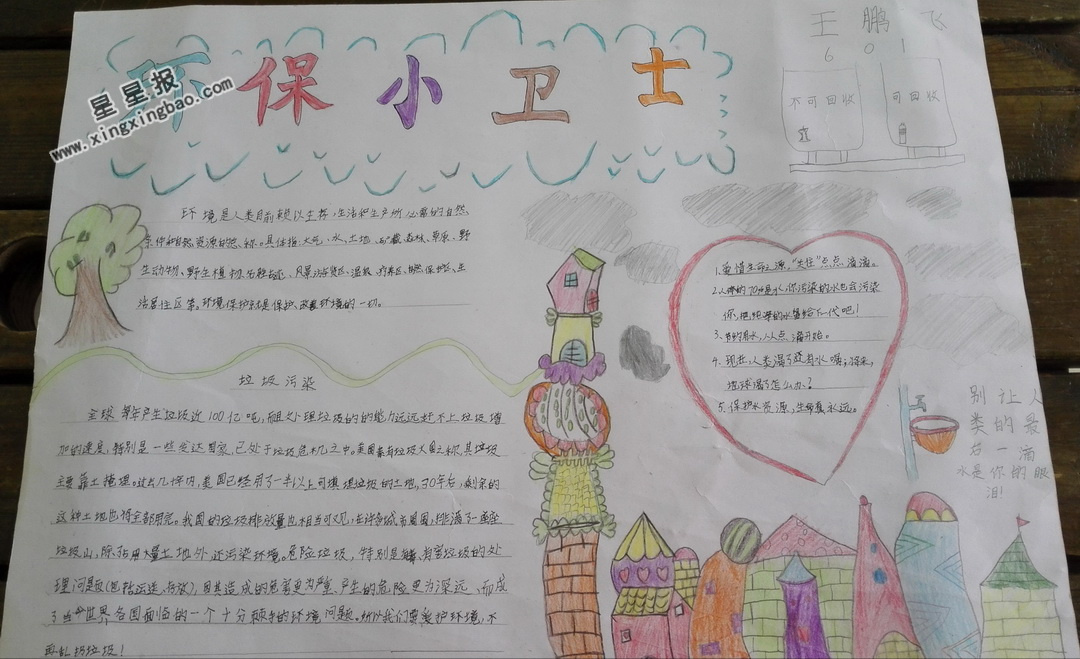 环保小卫士
星星报
www.xingxingbao.com
王鹏飞
601
不可回收
可回收
环境是人类目前赖以生存、生活和生产所必需的自然
条件和自然资源的总称。具体指:大气、水、土地、矿藏、森林、草原、野
生动物、野生植物、名胜古迹、风景游览区、温泉、疗养区、自然保护区、生
活居住区等。环境保护就是保护、改善环境的一切。
垃圾污染
全球每年产生垃圾近100亿吨,而且处理垃圾的的能力远远赶不上垃圾增
加的速度,特别是一些发达国家,已处于垃圾危机之中。美国素有垃圾大国之称,其垃圾
主要靠土掩埋。过去几十年内,美国已经用了一半以上可填埋垃圾的土地,30年后,剩余的
这种土地也将全部用完。我国的垃圾排放量也相当可观,在许多城市周围,排满了一座座
垃圾山,除占用大量土地外,还污染环境。危险垃圾,特别是有毒、有害垃圾的处
理问题(包括运送、存放),因其造成的危害更为严重,产生的危险更为深远,而成
了当今世界各国面临的一个十分棘手的环境问题。所以我们要爱护环境,不
再乱扔垃圾!
1.爱惜生命之源,"关住"点点滴滴。
2.人体的70%是水,你污染的水也会污染
你,把纯净的水留给下一代吧!
3.节约用水,从点滴开始。
4.现在,人类渴了还有水喝;将来,
地球渴了怎么办?
5.保护水资源,生命真永远。
别让人
类的最
后一滴
水是你的眼
泪!